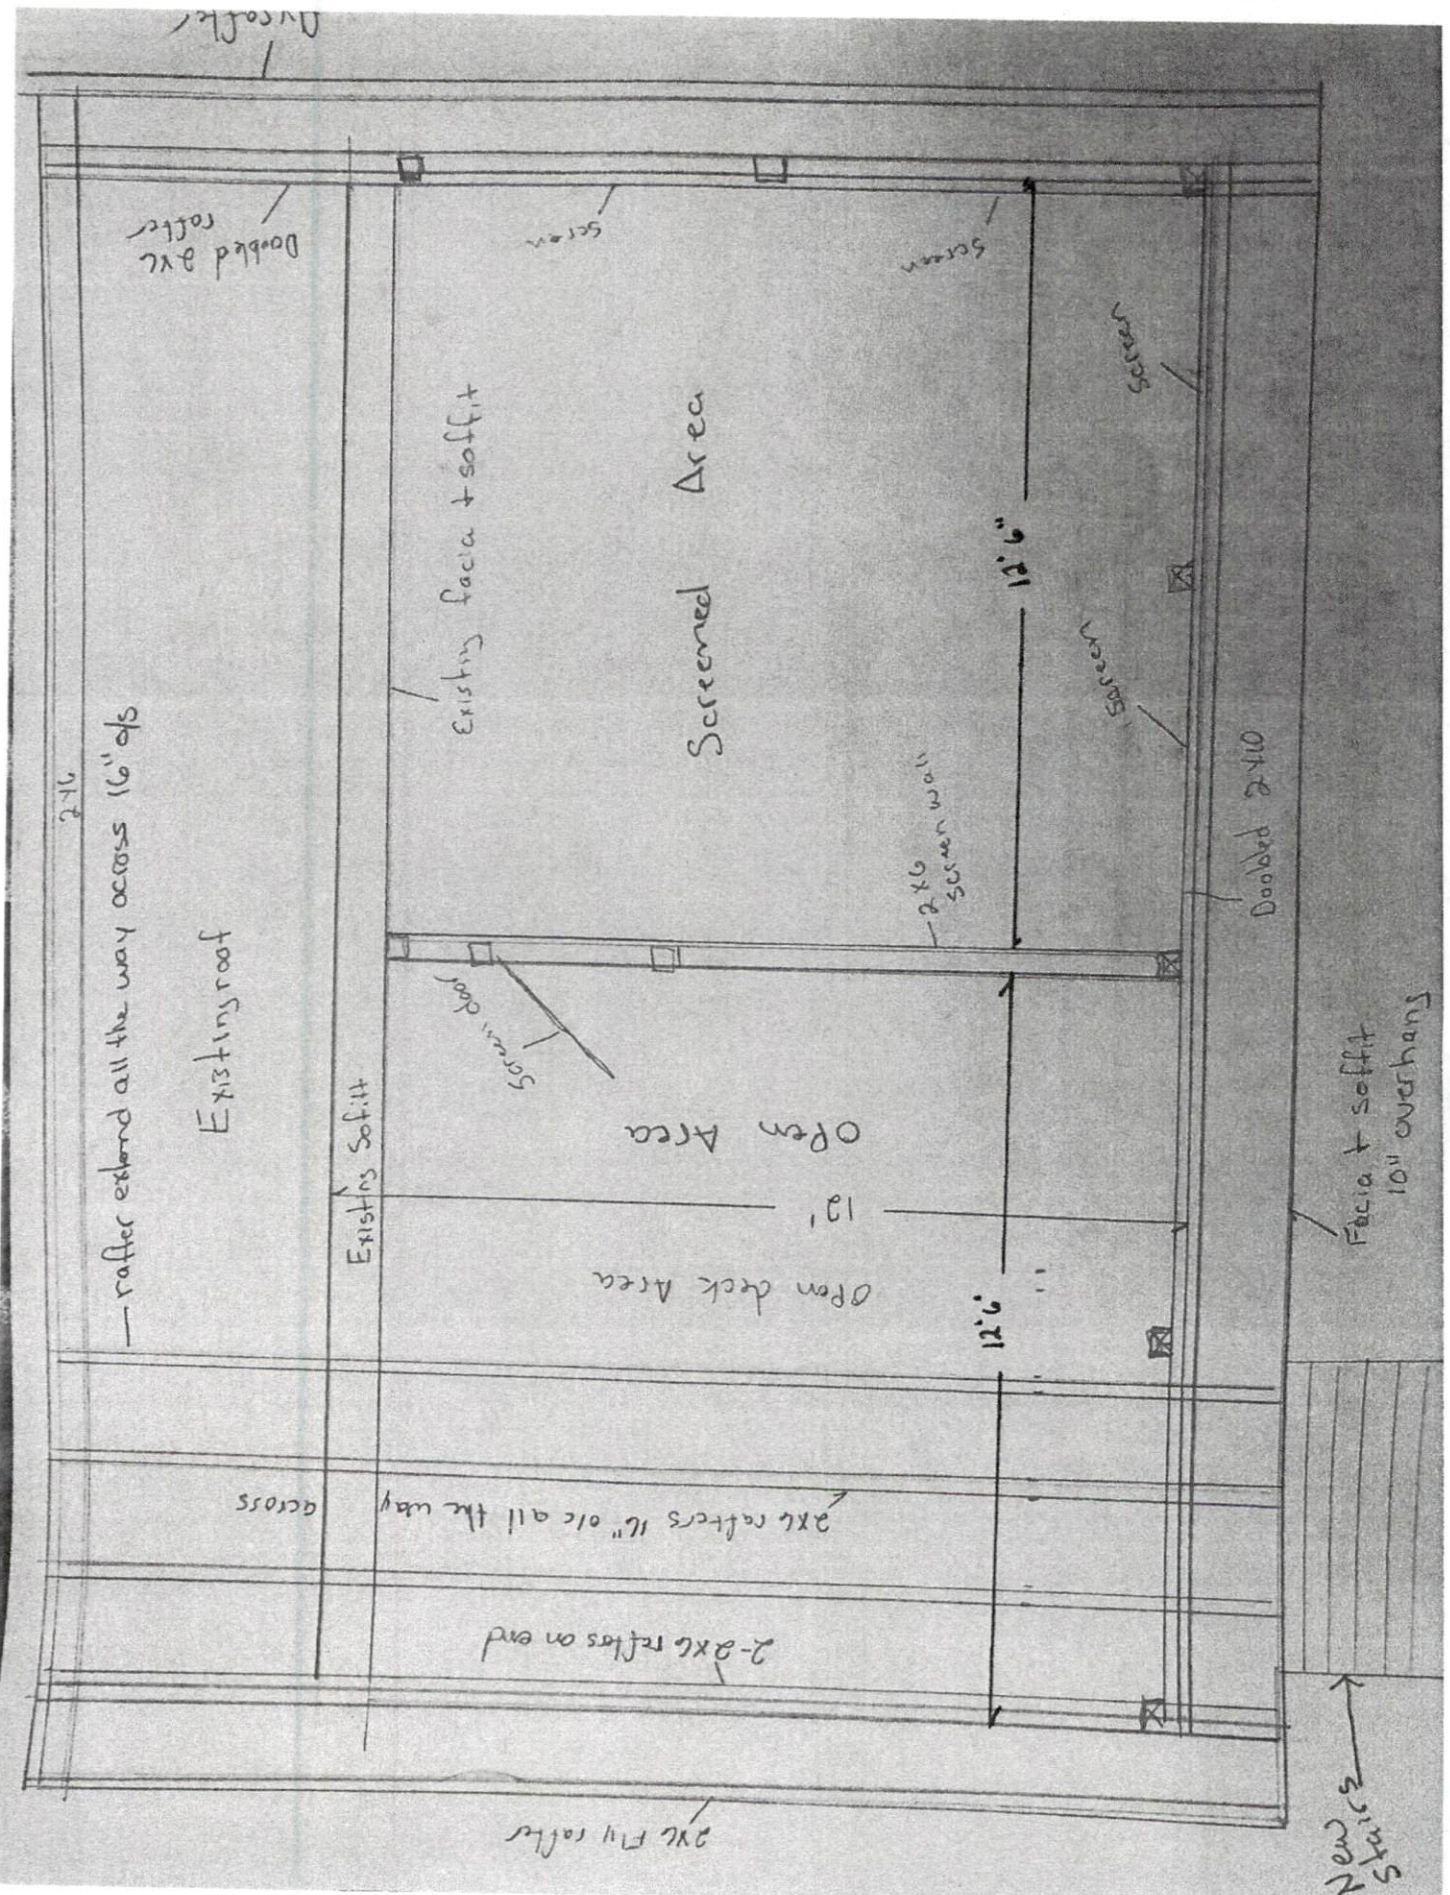 fly rafter
Doobled 2x6
rafter
screen
screen
screen
screen
2x6
rafter extend all the way across 16" o/s
Existing roof
Existing facia + soffit
Screened Area
12'6"
2x6
screen wall
Doobled 2x10
Screen door
Existing Sofitt
Open Area
12'
Open deck Area
12'6"
Facia + soffit
10" overhang
2x6 rafters 16" o/c all the way
across
2-2x6 raftes on end
2x6 Fly rafter
New
Stairs